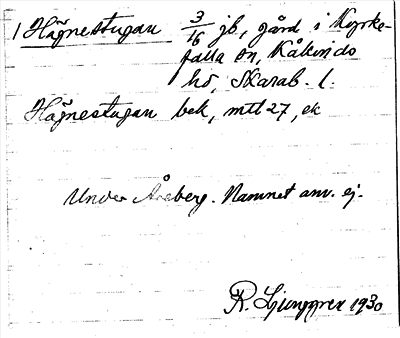 1 Hägnestugan 3/16 jb, gård i Kyrke-
falla sn, Kåkinds
hd, Skarab. l.
Hägnestugan bek, mtl 27, ek
Under Åreberg. Namnet anv. ej.
R. Ljunggren 1930